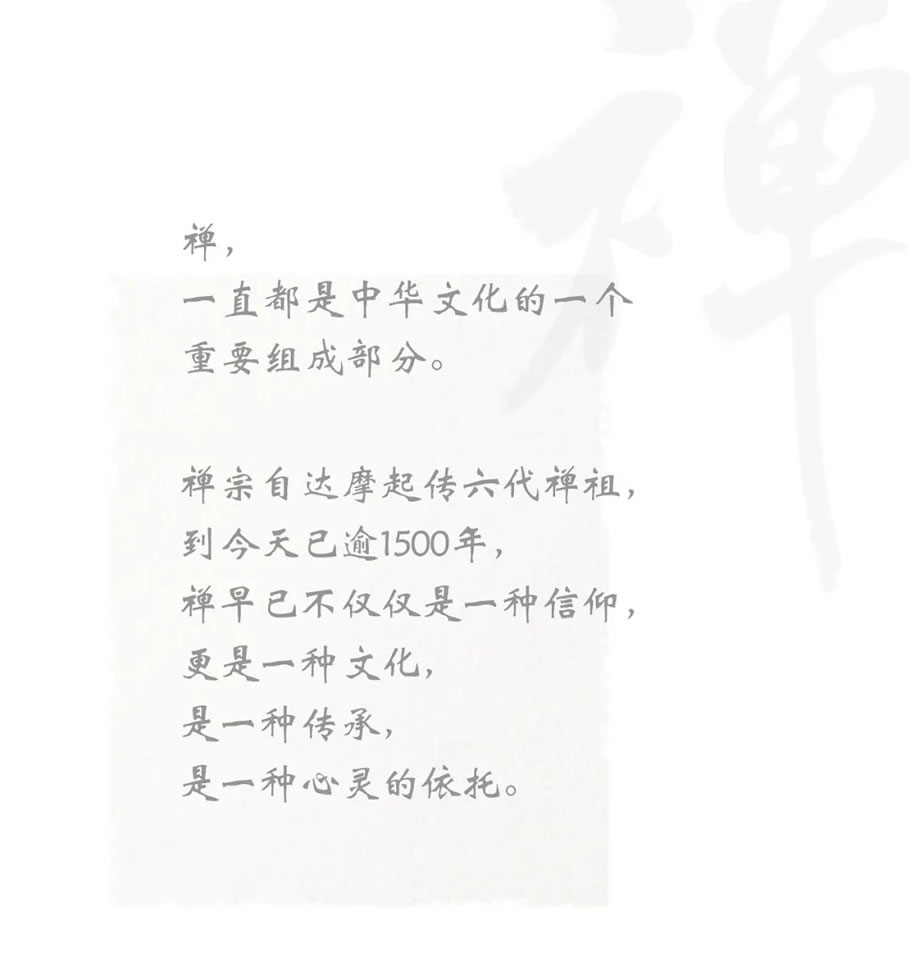 禅
禅，
一直都是中华文化的一个
重要组成部分。
禅宗自达摩起传六代禅祖，
到今天已逾1500年，
禅早已不仅仅是一种信仰，
更是一种文化，
是一种传承，
是一种心灵的依托。